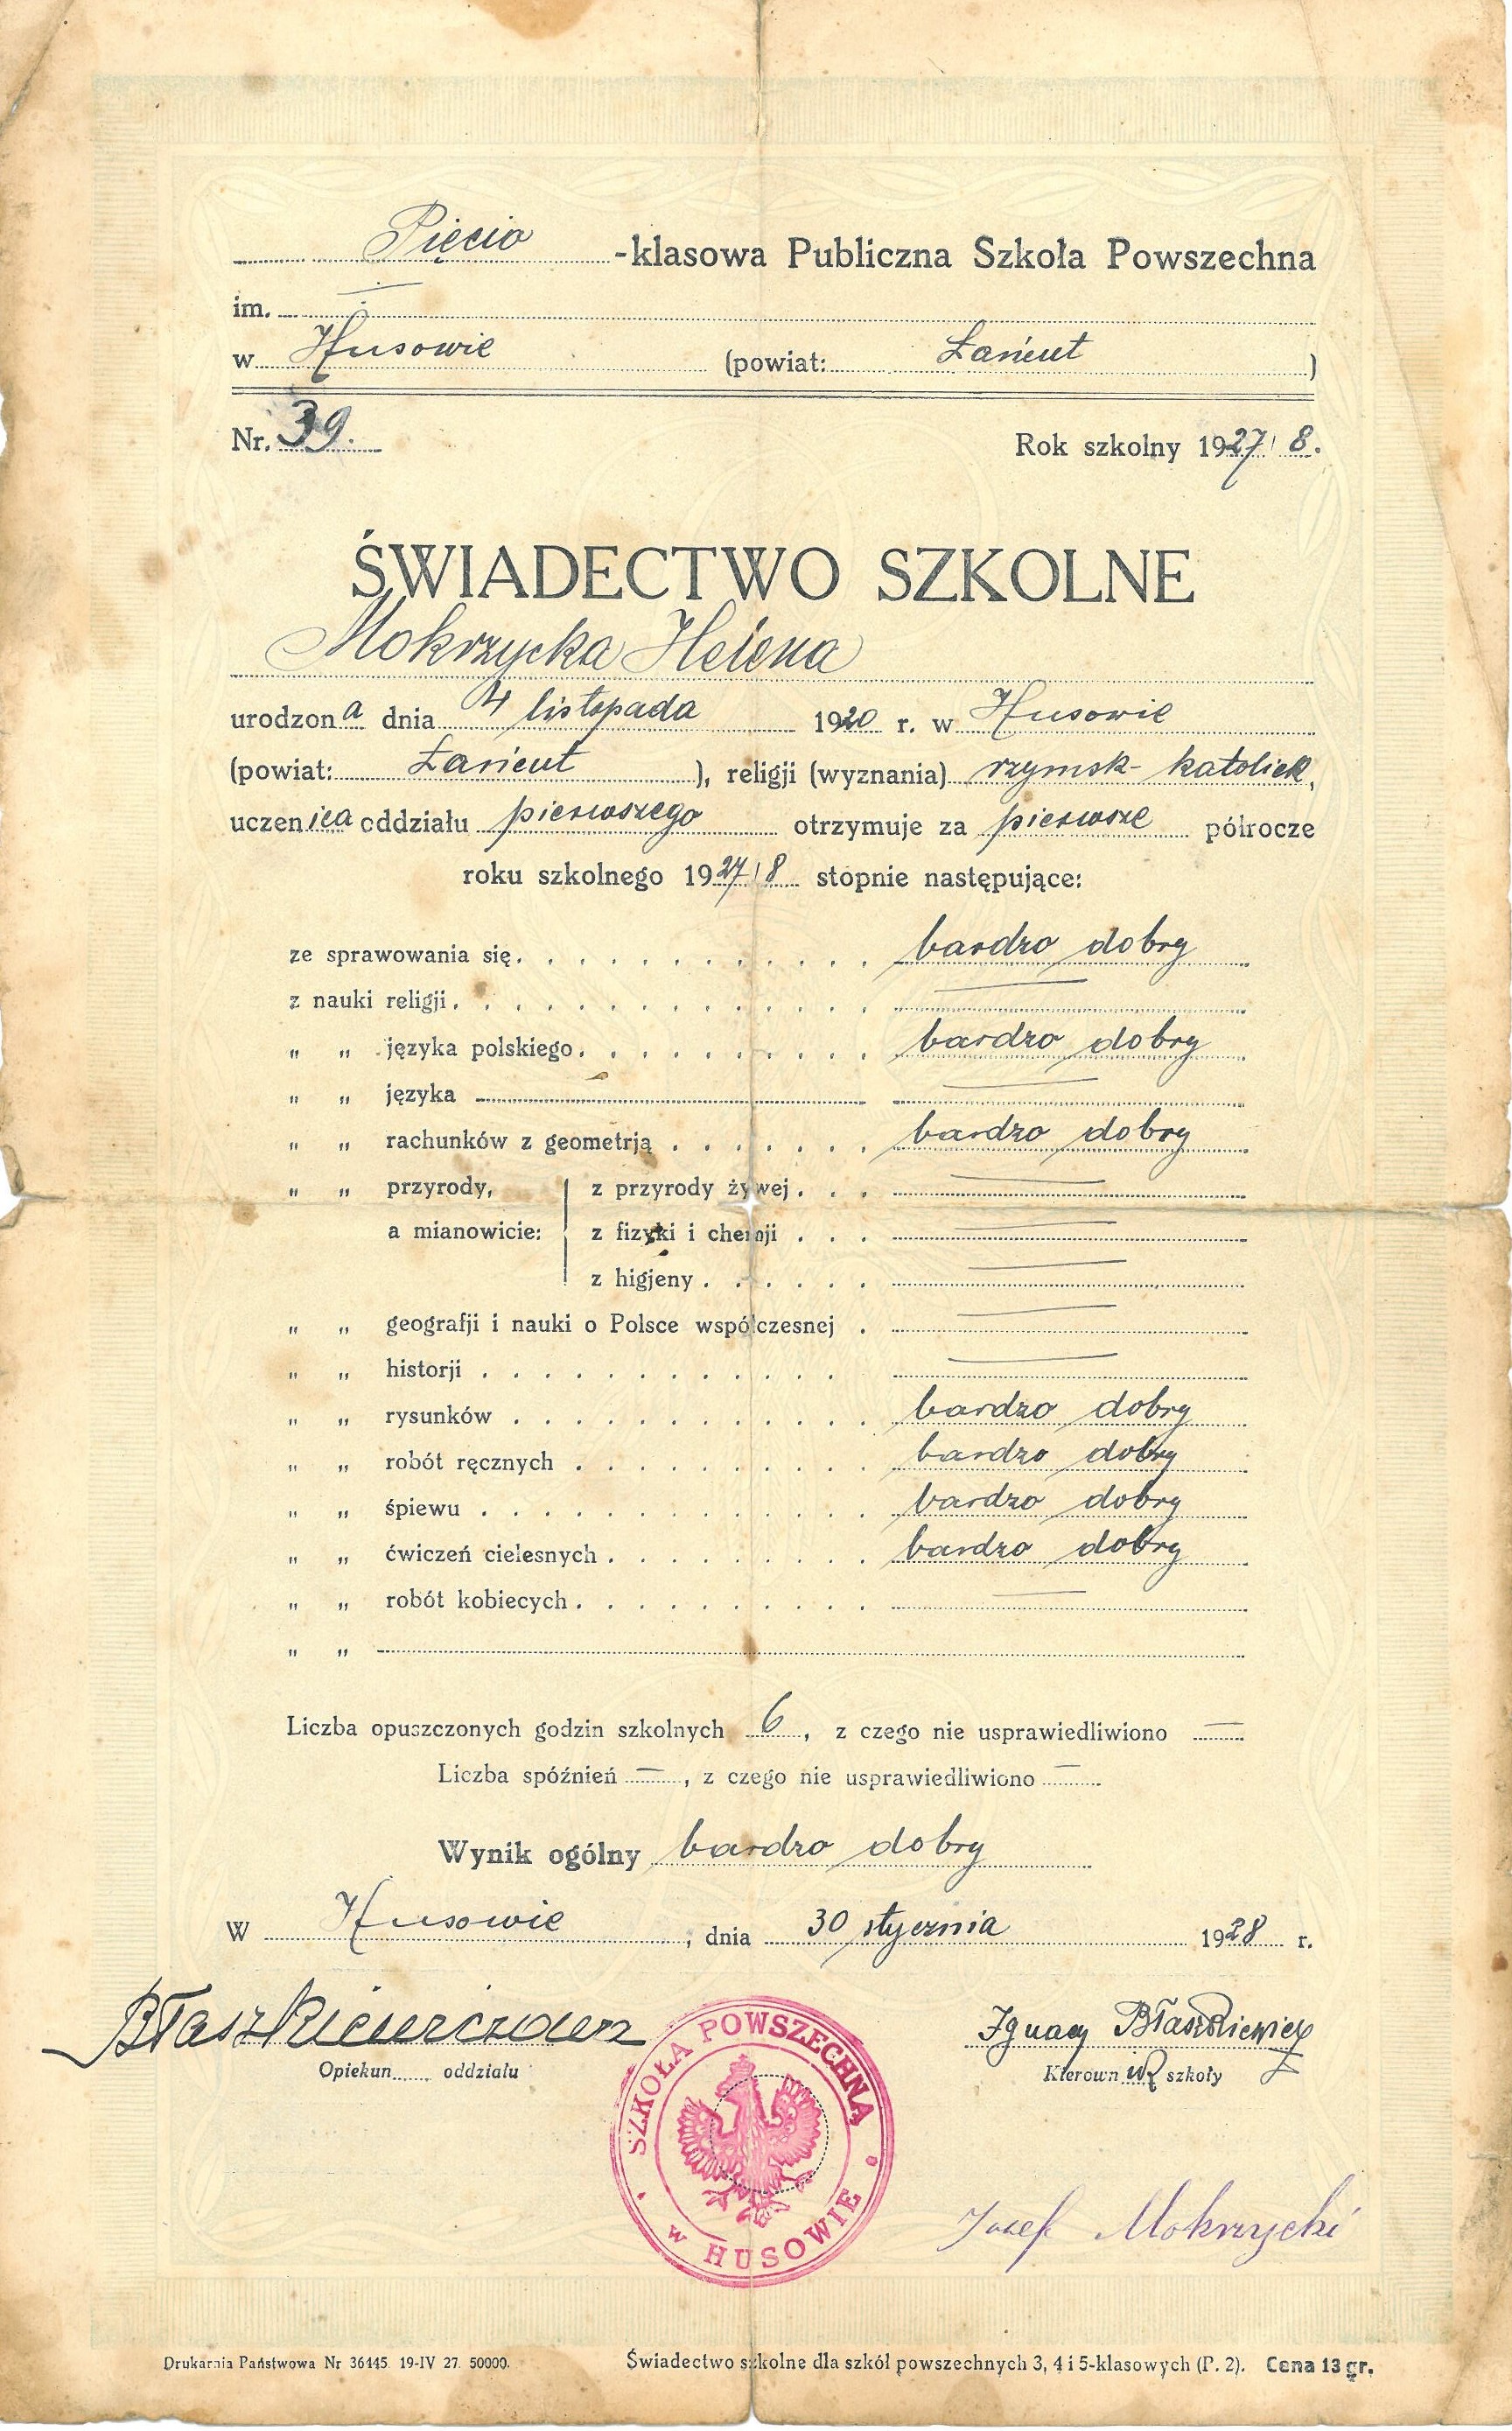 Pięcio -klasowa Publiczna Szkoła Powszechna
im. —
w Husowie (powiat: Łańcut )
Nr. 39. Rok szkolny 1927/8.
ŚWIADECTWO SZKOLNE
Mokrzycka Helena
urodzona dnia 4 listopada 1920 r. w Husowie
(powiat: Łańcut ), religji (wyznania) rzymsk-katolick,
uczenica oddziału pierwszego otrzymuje za pierwsze półrocze
roku szkolnego 1927/8 stopnie następujące:
ze sprawowania się. bardzo dobry
z nauki religji. —
" " języka polskiego. bardzo dobry
" " języka —
" " rachunków z geometrją bardzo dobry
" " przyrody, z przyrody żywej —
a mianowicie: z fizyki i chemji —
z higjeny —
" " geografji i nauki o Polsce współczesnej —
" " historji —
" " rysunków bardzo dobry
" " robót ręcznych bardzo dobry
" " śpiewu bardzo dobry
" " ćwiczeń cielesnych bardzo dobry
" " robót kobiecych —
" "
Liczba opuszczonych godzin szkolnych 6, z czego nie usprawiedliwiono —
Liczba spóźnień —, z czego nie usprawiedliwiono —
Wynik ogólny bardzo dobry
W Husowie, dnia 30 stycznia 1928 r.
Błaszkiewiczowa Ignacy Błaszkiewicz
Opiekun oddziału Kierownik szkoły
SZKOŁA POWSZECHNA
w HUSOWIE
Józef Mokrzycki
Drukarnia Państwowa Nr 36445. 19-IV 27. 50000. Świadectwo szkolne dla szkół powszechnych 3, 4 i 5-klasowych (P. 2). Cena 13 gr.